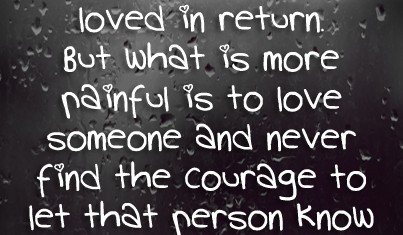 loved in return.
But what is more
painful is to love
someone and never
find the courage to
let that person know